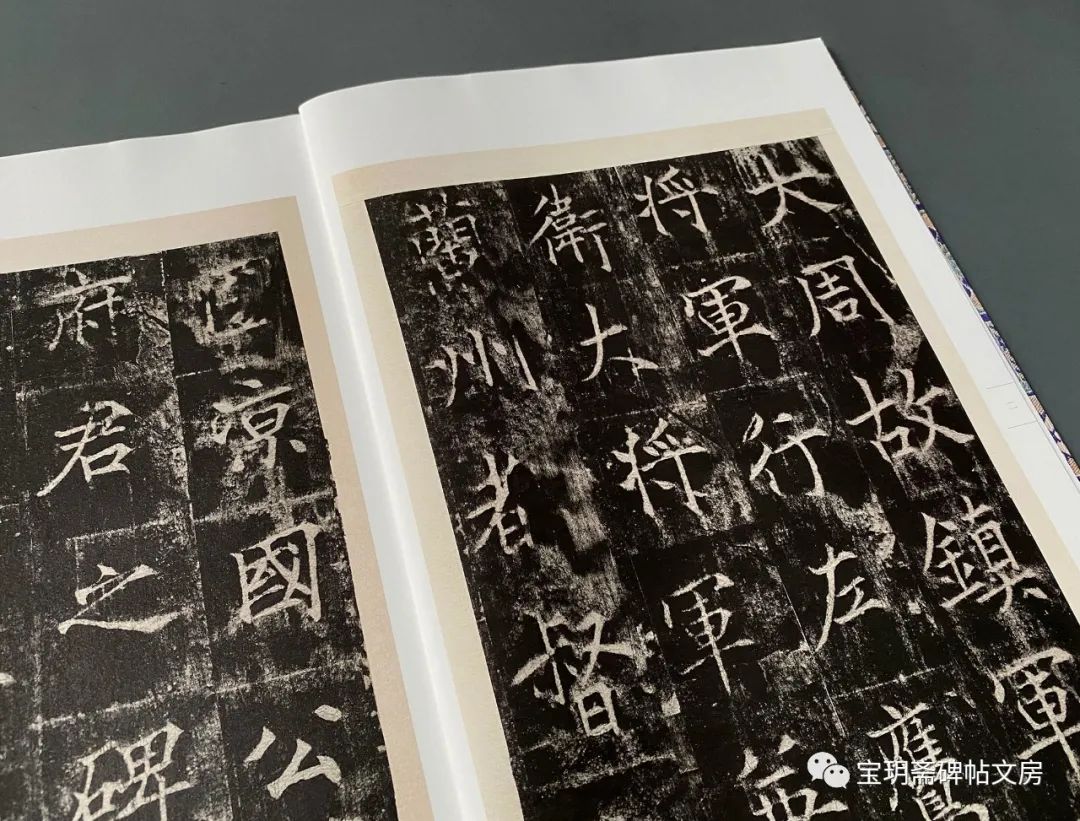 大周故鎮軍
将軍行左鷹
衛大将軍
蘭州者督
涼國公
府君之碑
宝玥斋碑帖文房